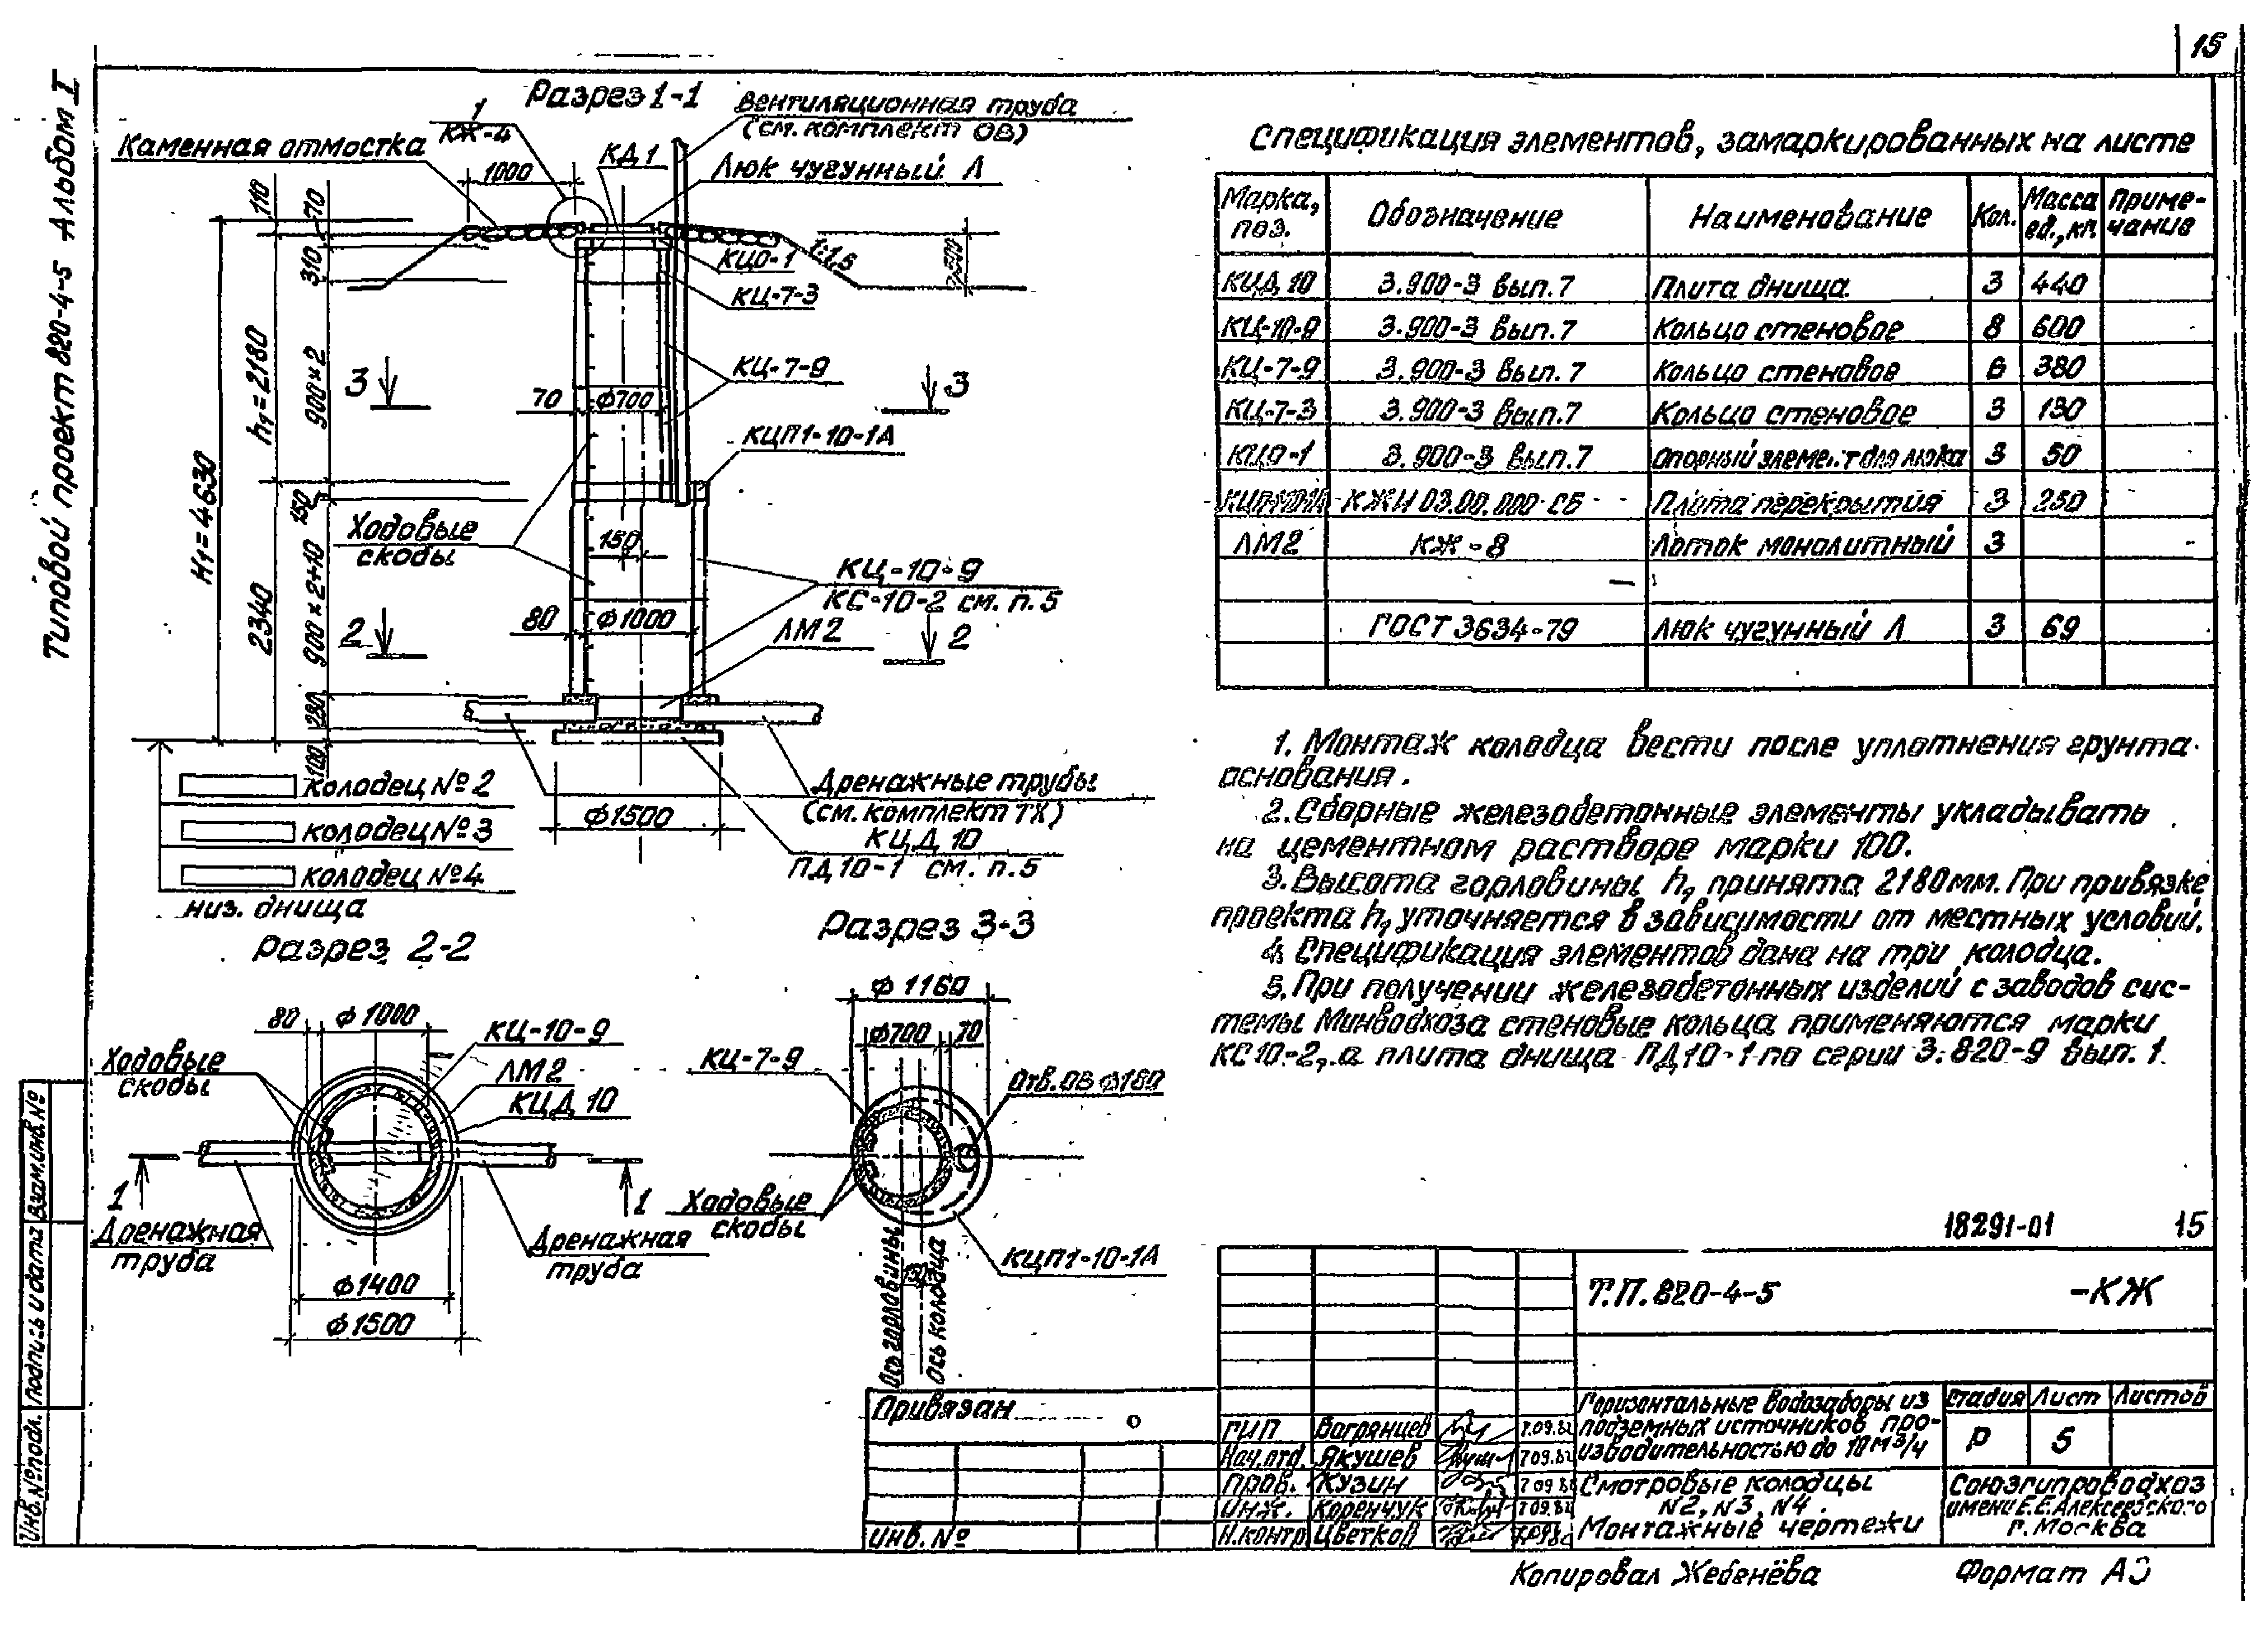 15
Типовой проект 820-4-5 Альбом I
Разрез 1-1
1
КЖ-4
Каменная отмостка
1000
КД1
Вентиляционная труба
(см. комплект ОВ)
Люк чугунный Л
110
70
310
1:1,5
КЦО-1
КЦ-7-3
h₁=2180
900×2
3
3
КЦ-7-9
70
ф700
КЦП1-10-1А
H₁=4630
150
Ходовые
скобы
150
КЦ-10-9
КС-10-2 см. п.5
2340
900×2+10
80
ф1000
ЛМ2
2
2
280
100
колодец №2
колодец №3
колодец №4
низ. днища
Дренажные трубы
(см. комплект ТХ)
ф1500
КЦД 10
ПД10-1 см. п.5
Разрез 2-2
80
ф1000
КЦ-10-9
ЛМ2
КЦД 10
Ходовые
скобы
1
1
Дренажная
труба
Дренажная
труба
ф1400
ф1500
Разрез 3-3
ф1160
ф700
70
КЦ-7-9
Отв. ОВ ф180
Ходовые
скобы
КЦП1-10-1А
Ось горловины
Ось колодца
Спецификация элементов, замаркированных на листе
Марка, поз. Обозначение Наименование Кол. Масса ед., кг. Примечание
КЦД 10 3.900-3 вып.7 Плита днища 3 440
КЦ-10-9 3.900-3 вып.7 Кольцо стеновое 8 600
КЦ-7-9 3.900-3 вып.7 Кольцо стеновое 6 380
КЦ-7-3 3.900-3 вып.7 Кольцо стеновое 3 130
КЦО-1 3.900-3 вып.7 Опорный элемент для люка 3 50
КЖИ 03.00.000 СБ Плита перекрытия 3 250
ЛМ2 КЖ-8 Лоток монолитный 3
ГОСТ 3634-79 Люк чугунный Л 3 69
1. Монтаж колодца вести после уплотнения грунта
основания.
2. Сборные железобетонные элементы укладывать
на цементном растворе марки 100.
3. Высота горловины h₁ принята 2180мм. При привязке
проекта h₁ уточняется в зависимости от местных условий.
4. Спецификация элементов дана на три колодца.
5. При получении железобетонных изделий с заводов сис-
темы Минводхоза стеновые кольца применяются марки
КС10-2, а плита днища ПД10-1 по серии 3.820-9 вып. 1.
18291-01 15
Т.П. 820-4-5 -КЖ
Привязан
Инв. №
ГИП
Нач.отд. Якушев
Пров. Кузин
Инж. Коренчук
Н.контр. Цветков
Горизонтальные водозаборы из
подземных источников про-
изводительностью до 10 м3/ч
Стадия Лист Листов
Р 5
Смотровые колодцы
N2, N3, N4.
Монтажные чертежи
Союзгипроводхоз
имени Е.Е. Алексеевского
г. Москва
Копировал Жебенёва
Формат А3
Инв. № подл. Подпись и дата Взам. инв. №